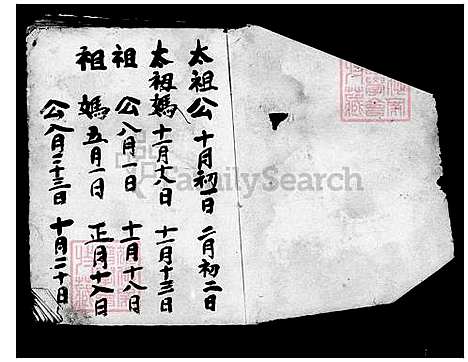 太祖公十月初一日 二月初二日
太祖媽十二月十八日 十二月十三日
祖公八月一日 十一月十八日
祖媽五月一日 正月十八日
公八月二十三日 十月二十日
FamilySearch